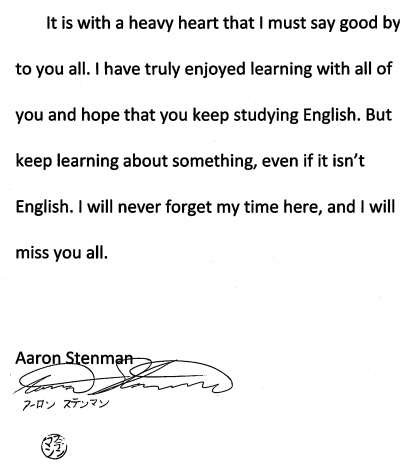 It is with a heavy heart that I must say good by
to you all. I have truly enjoyed learning with all of
you and hope that you keep studying English. But
keep learning about something, even if it isn't
English. I will never forget my time here, and I will
miss you all.
Aaron Stenman
Aaron Stenman
アーロン ステンマン